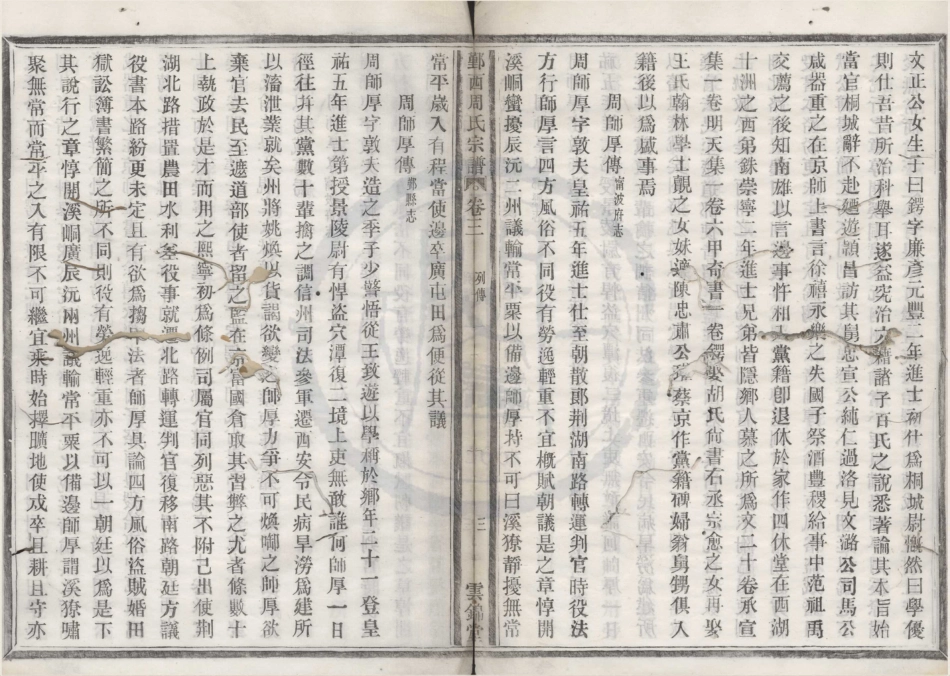 文正公女生子曰鍔字廉彥元豐二年進士初仕為桐城尉慨然曰學優
則仕吾昔所治科舉耳遂益究治六籍諸子百氏之說悉著論其本旨始
當官桐城辭不赴迺遊潁昌訪其舅忠宣公純仁過洛見文潞公司馬公
咸器重之在京師上書言徐禧永樂之失國子祭酒豐稷給事中范祖禹
交薦之後知南雄以言邊事忤相入黨籍卽退休於家作四休堂在西湖
十洲之西弟銖崇寧二年進士兄弟皆隱鄉人慕之所爲文二十卷承宣
集一卷明天集一卷六甲奇書一卷鍔娶胡氏尙書右丞宗愈之女再娶
王氏翰林學士覿之女妹適陳忠肅公瓘蔡京作黨籍碑婦翁舅甥俱入
籍後以爲盛事焉
周師厚傳寧波府志
周師厚字敦夫皇祐五年進士仕至朝散郞荆湖南路轉運判官時役法
方行師厚言四方風俗不同役有勞逸輕重不宜槪賦朝議是之章惇開
溪峒蠻擾辰沅二州議輸常平粟以備邊師厚持不可曰溪獠靜擾無常
鄞西周氏宗譜 卷三 列傳 三 雲錦堂
常平歲入有程當使邊卒廣屯田爲便從其議
周師厚傳鄞縣志
周師厚字敦夫造之季子少警悟從王致遊以學稱於鄉年二十一登皇
祐五年進士第授景陵尉有悍盜穴潭復二境上吏無敢誰何師厚一日
徑往幷其黨數十輩擒之調信州司法參軍遷西安令民病旱澇爲建所
以瀦泄業就矣州將姚煥以貨謁欲變之師厚力爭不可煥啣之師厚欲
棄官去民至遮道部使者留之監在京富國倉取其宿弊之尤者條數十
上執政於是才而用之熙寧初爲條例司屬官同列惡其不附己出使荆
湖北路措置農田水利差役事就遷北路轉運判官復移南路朝廷方議
役書本路紛更未定且有欲爲搖法者師厚具論四方風俗盜賊婚田
獄訟簿書繁簡之所不同則役有勞逸輕重亦不可以一朝廷以爲是下
其說行之章惇開溪峒廣辰沅兩州議輸常平粟以備邊師厚謂溪獠嘯
聚無常而常平之入有限不可繼宜乘時始擇曠地使戍卒且耕且守亦